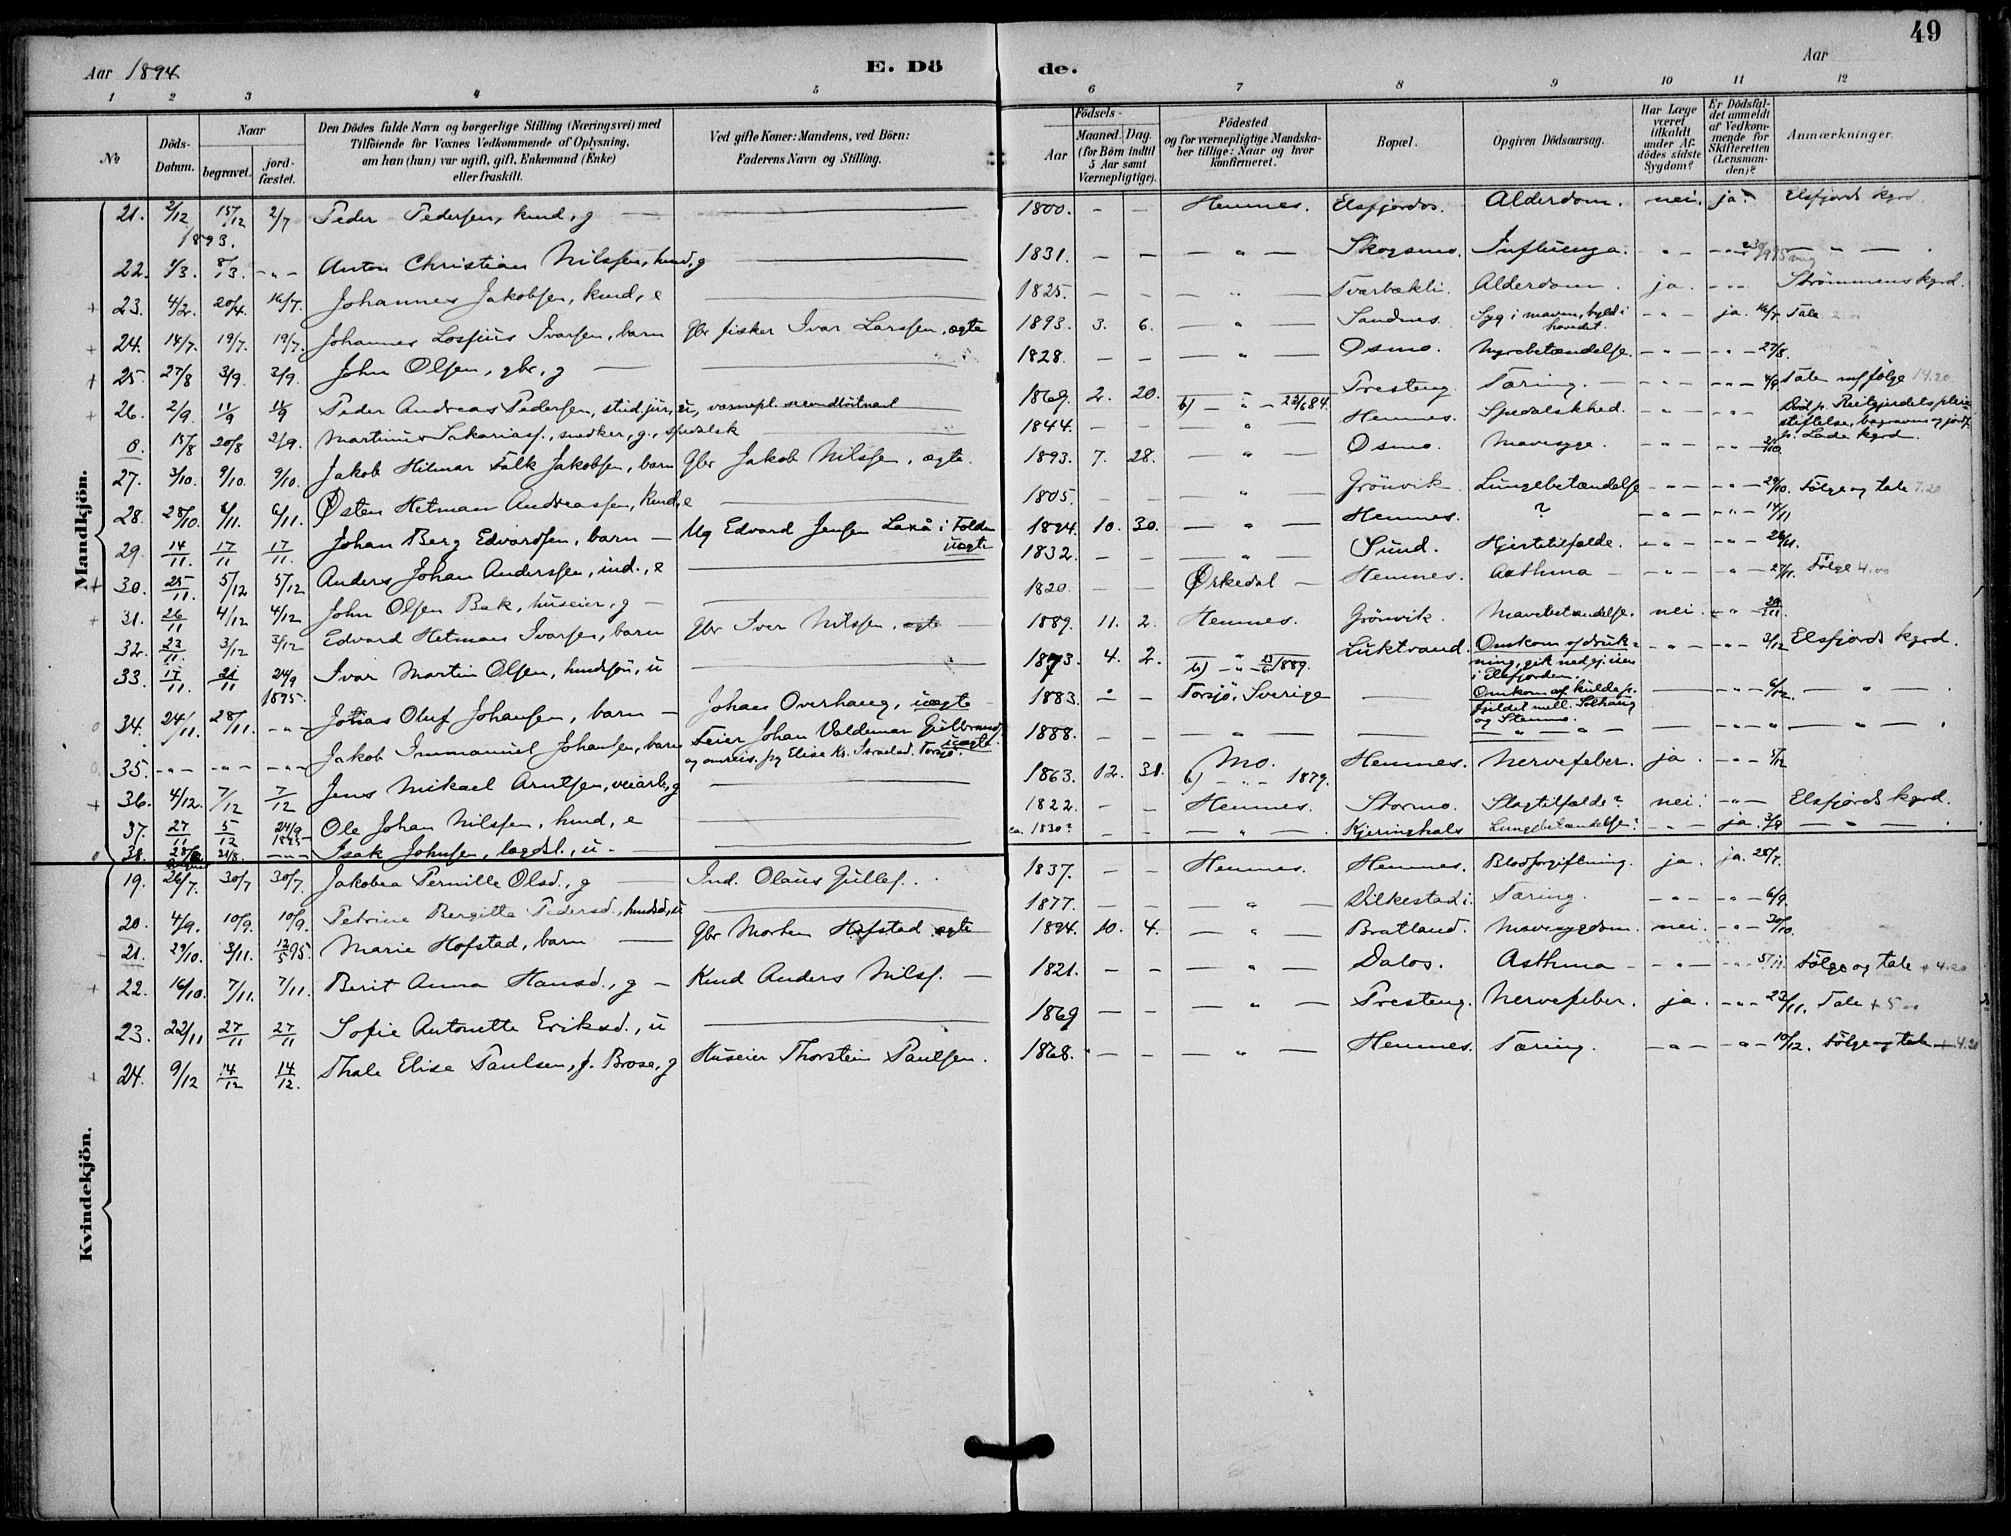 49
Aar 1894
E. Dö
de.
Aar
1 2 3 4 5 6 7 8 9 10 11 12
No
Döds-Datum.
Naar
begravet.
jord-fæstet.
Den Dödes fulde Navn og borgerlige Stilling (Næringsvei) med
Tilföiende for Voxnes Vedkommende af Oplysning,
om han (hun) var ugift, gift, Enkemand (Enke)
eller fraskilt.
Ved gifte Koner: Mandens, ved Börn:
Faderens Navn og Stilling.
Födsels-
Aar
Maaned. Dag.
(for Börn indtil
5 Aar samt
Værnepligtige).
Födested
og for værnepligtige Mandska-
ber tillige: Naar og hvor
konfirmeret.
Bopæl.
Opgiven Dödsaarsag.
Har Læge
været
tilkaldt
under Af-
dödes sidste
Sygdom?
Er Dödsfal-
det anmeldt
af Vedkom-
mende for
Skifteretten
(Lensman-
den)?
Anmærkninger.
Mandkjön.
21. 2/12 1893. 15/12 2/7 Peder Pedersen, kund, g — 1800. - - Hemnes. Elsfjordos. Alderdom. nei. ja. Elsfjords kgrd.
22. 1/3. 8/13. -"- Anton Christian Nilssen, kund, g 1831. - - " Skogsmo. Influenza. -"- -"-
23. 4/2. 20/4. 16/7. Johannes Jakobsen, kund, e 1825. - - " Tverbækli. Alderdom. ja. -"- Strømmens kgrd.
24. 14/7. 19/7. 19/7. Johannes Losius Ivarsen, barn Gbr fisker Ivar Larssen, ægte 1893. 3. 6. " Sandnes. Syg i maven, byld i hovedet. -"- ja. 16/7 Tale
25. 27/8 3/9. 3/9. John Olsen, gbr, g — 1828. - - " Osmo. Nyrebetændelse. -"- -"- 27/8.
26. 2/9. 11/9 11/9 Peder Andreas Pedersen, stud. jur., u, værnepl. 1869. 2. 20. " b) - " - 22/6 84. Presteng. Tæring. -"- -"- 4/9 Talen m/følge 14.20
0. 15/8 20/8 2/9. Martinus Sakariass., snedker, g., spedalsk 1844. - - " Hemnes. Spedalskhed. -"- -"- Død p. Reitgjerdets pleie-stiftelse, begraven og jordf. p. Lade kgrd.
27. 3/10. 9/10. 9/10. Jakob Hilmar Falk Jakobsen, barn Gbr Jakob Nilssen, ægte. 1893. 7. 28. " Osmo. Mavesyge. -"- -"- 2/10.
28. 28/10. 6/11. 6/11. Østen Hetman Andreassen, kund, e 1805. - - " Grönvik Lungebetændelse -"- -"- 29/10. Følge og tale 7.20
29. 14/11. 17/11 17/11. Johan Berg Edvardsen, barn — Ug Edvard Jensen Laxå i Folden uægte 1894. 10. 30. " Hemnes. ? -"- -"- 14/11
30. 25/11. 5/12 5/12 Anders Johan Anderssen, ind., e 1832. - - " Sund. Hjertetilfælde. -"- -"- 26/11.
31. 26/11 4/12 4/12 John Olsen Bak, huseier, g — 1820. - - Ørkedal — Hemnes. Asthma -"- -"- 27/11. Følge 4.00
32. 23/11. 3/12 3/12 Edvard Hetman Ivarsen, barn Gbr Iver Nilssen, ægte 1889. 11. 2. Hemnes. Grönvik. Mavebetændelse. nei. -"- 29/11.
33. 17/11. 21/11 24/9 1895. Ivar Martin Olsen, kundssön, u 1873. 4. 2. " b) - " - 23/6 1889. Luktvand. Omkom v/drukning, gik ned gj. isen i Elsfjorden. -"- -"- 3/12 Elsfjords kgrd.
34. 24/11. 28/11. -"- Johas Oluf Johansen, barn — Johan Overhaug, uægte 1883. - - Torsjö, Sverige — Omkom af kulde p. fjeldet mell. Solhaug og Stenmo. — -"- 6/12. - " -
35. -"- -"- -"- Jakob Immanuel Johansen, barn Feier Johan Valdemar Gulbrands. og omreis. pg Elise Ks. Israelsd. Torsjö. uægte. 1888. - - " — - " - — -"- " - " -
36. 4/12. 7/12 7/12 Jens Mikael Arntsen, veiarb., g 1863. 12. 31. Mo. b) - " - 1879. Hemnes. Nervefeber. ja. -"- 5/12
37. 27/11 5/12 24/9 1895 Ole Johan Nilssen, kund, e 1822. - - Hemnes. Stormo. Slagtilfælde? nei. -"- Elsfjords kgrd.
38. 28/ 21/8. -"- Isak Johnsen, lægdsl., u. ca. 1830? - - " Kjeringhals Lungebetændelse? -"- ja. 3/9 - " -
Kvindekjön.
19. 26/7. 30/7 30/7. Jakobea Pernille Olsd., g Ind. Olaus Gullef. 1837. - - Hemnes. Hemnes. Blodforgiftning. ja. ja. 28/7.
20. 4/9. 10/9. 10/9. Petrine Bergitte Pedersd., kundsd., u 1877. - - " Vilkestad i. Tæring. -"- -"- 6/9.
21. 29/10. 3/11. 12/5 95. Marie Hofstad, barn Gbr Morten Hofstad ægte 1894. 10. 4. " Bratland. Mavesygdom. nei. -"- 30/10.
22. 16/10. 7/11. 7/11. Berit Anna Hansd., g — Kund Anders Nilsf. — 1821. - - " Dalos. Asthma -"- -"- 5/11. Følge og tale + 4.20
23. 22/11 27/11 27/11 Sofie Antonette Eriksd., u 1869 - - " Presteng. Nervefeber. ja. -"- 23/11. Tale + 5.00
24. 9/12 14/12 14/12. Thale Elise Paulsen, f. Brose, g Huseier Thorstein Paulsen. 1868. - - " Hemnes. Tæring. -"- -"- 10/12. Følge og tale + 4.20